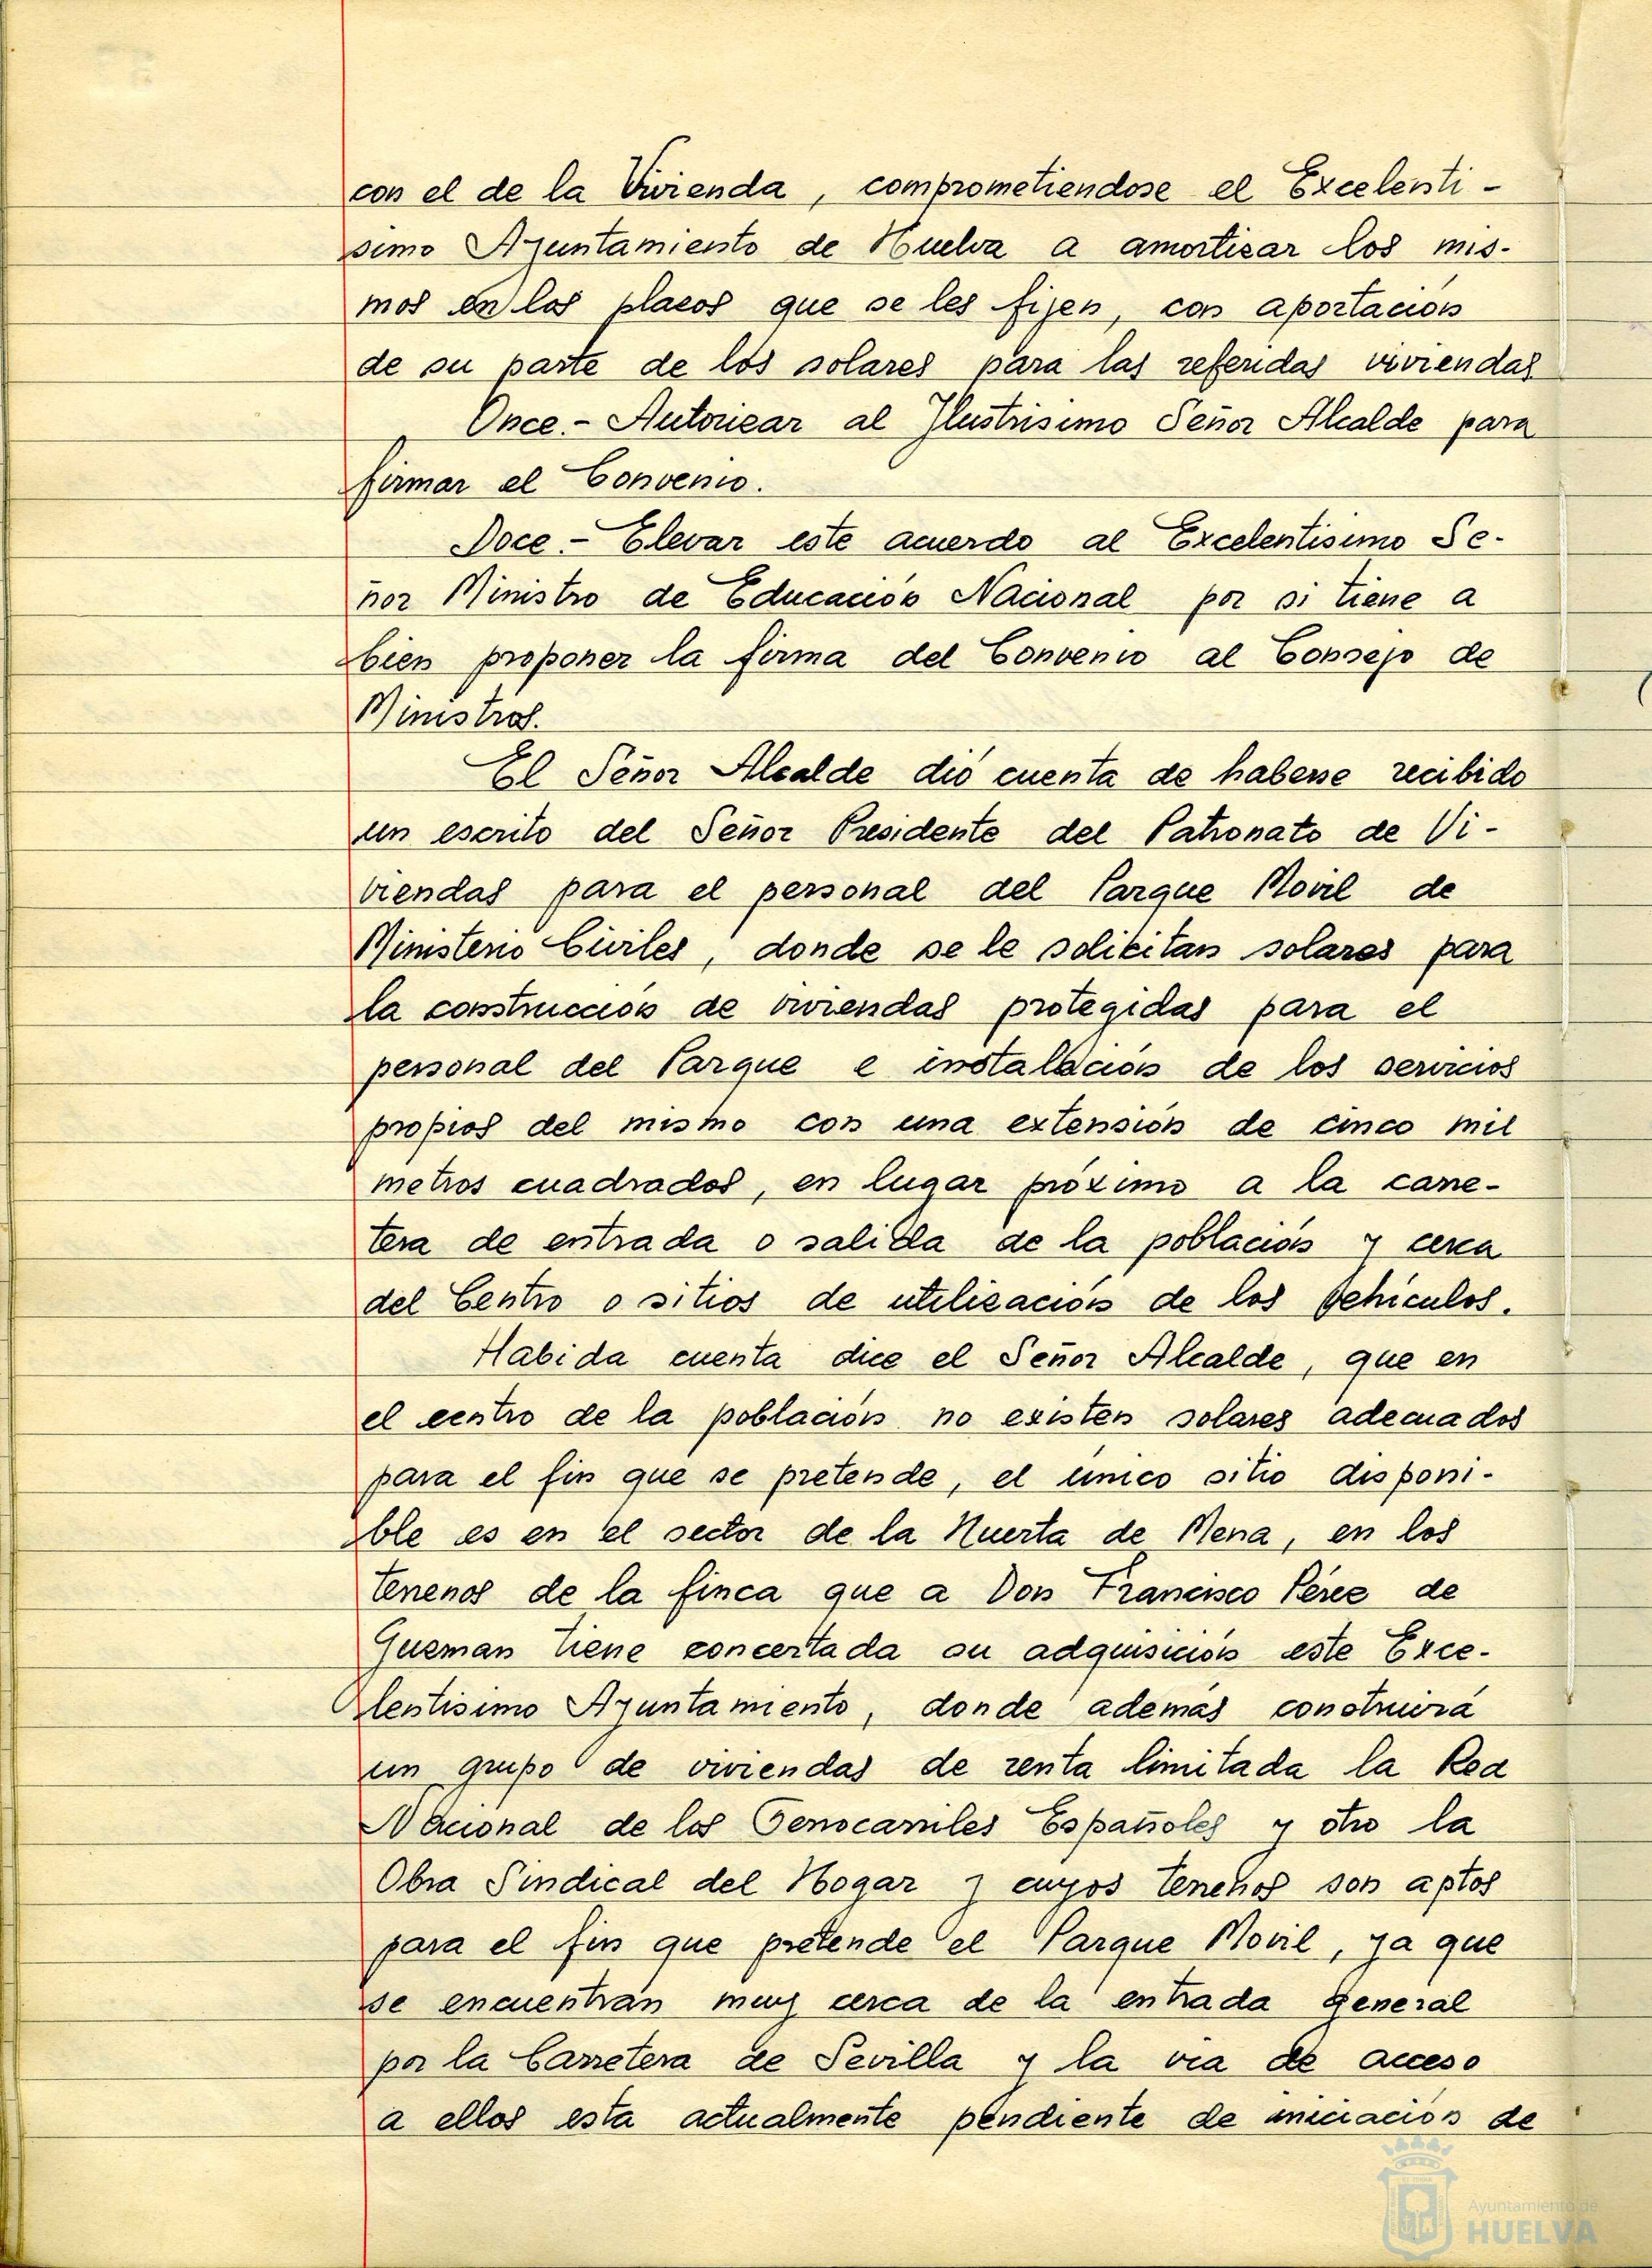 con el de la Vivienda, comprometiendose el Excelenti-
simo Ayuntamiento de Huelva a amortizar los mis-
mos en los plazos que se les fijen, con aportación
de su parte de los solares para las referidas viviendas
Once.- Autorizar al Ilustrisimo Señor Alcalde para
firmar el Convenio.
Doce.- Elevar este acuerdo al Excelentisimo Se-
ñor Ministro de Educación Nacional por si tiene a
bien proponer la firma del Convenio al Consejo de
Ministros.
El Señor Alcalde dió cuenta de haberse recibido
un escrito del Señor Presidente del Patronato de Vi-
viendas para el personal del Parque Movil de
Ministerio Civiles, donde se le solicitan solares para
la construcción de viviendas protegidas para el
personal del Parque e instalación de los servicios
propios del mismo con una extensión de cinco mil
metros cuadrados, en lugar próximo a la carre-
tera de entrada o salida de la población y cerca
del Centro o sitios de utilización de los vehículos.
Habida cuenta dice el Señor Alcalde, que en
el centro de la población no existen solares adecuados
para el fin que se pretende, el único sitio disponi-
ble es en el sector de la Huerta de Mena, en los
terrenos de la finca que a Don Francisco Pérez de
Guzman tiene concertada su adquisición este Exce-
lentisimo Ayuntamiento, donde además construirá
un grupo de viviendas de renta limitada la Red
Nacional de los Ferrocarriles Españoles y otro la
Obra Sindical del Hogar y cuyos terrenos son aptos
para el fin que pretende el Parque Movil, ya que
se encuentran muy cerca de la entrada general
por la Carretera de Sevilla y la via de acceso
a ellos esta actualmente pendiente de iniciación de
Ayuntamiento de
HUELVA